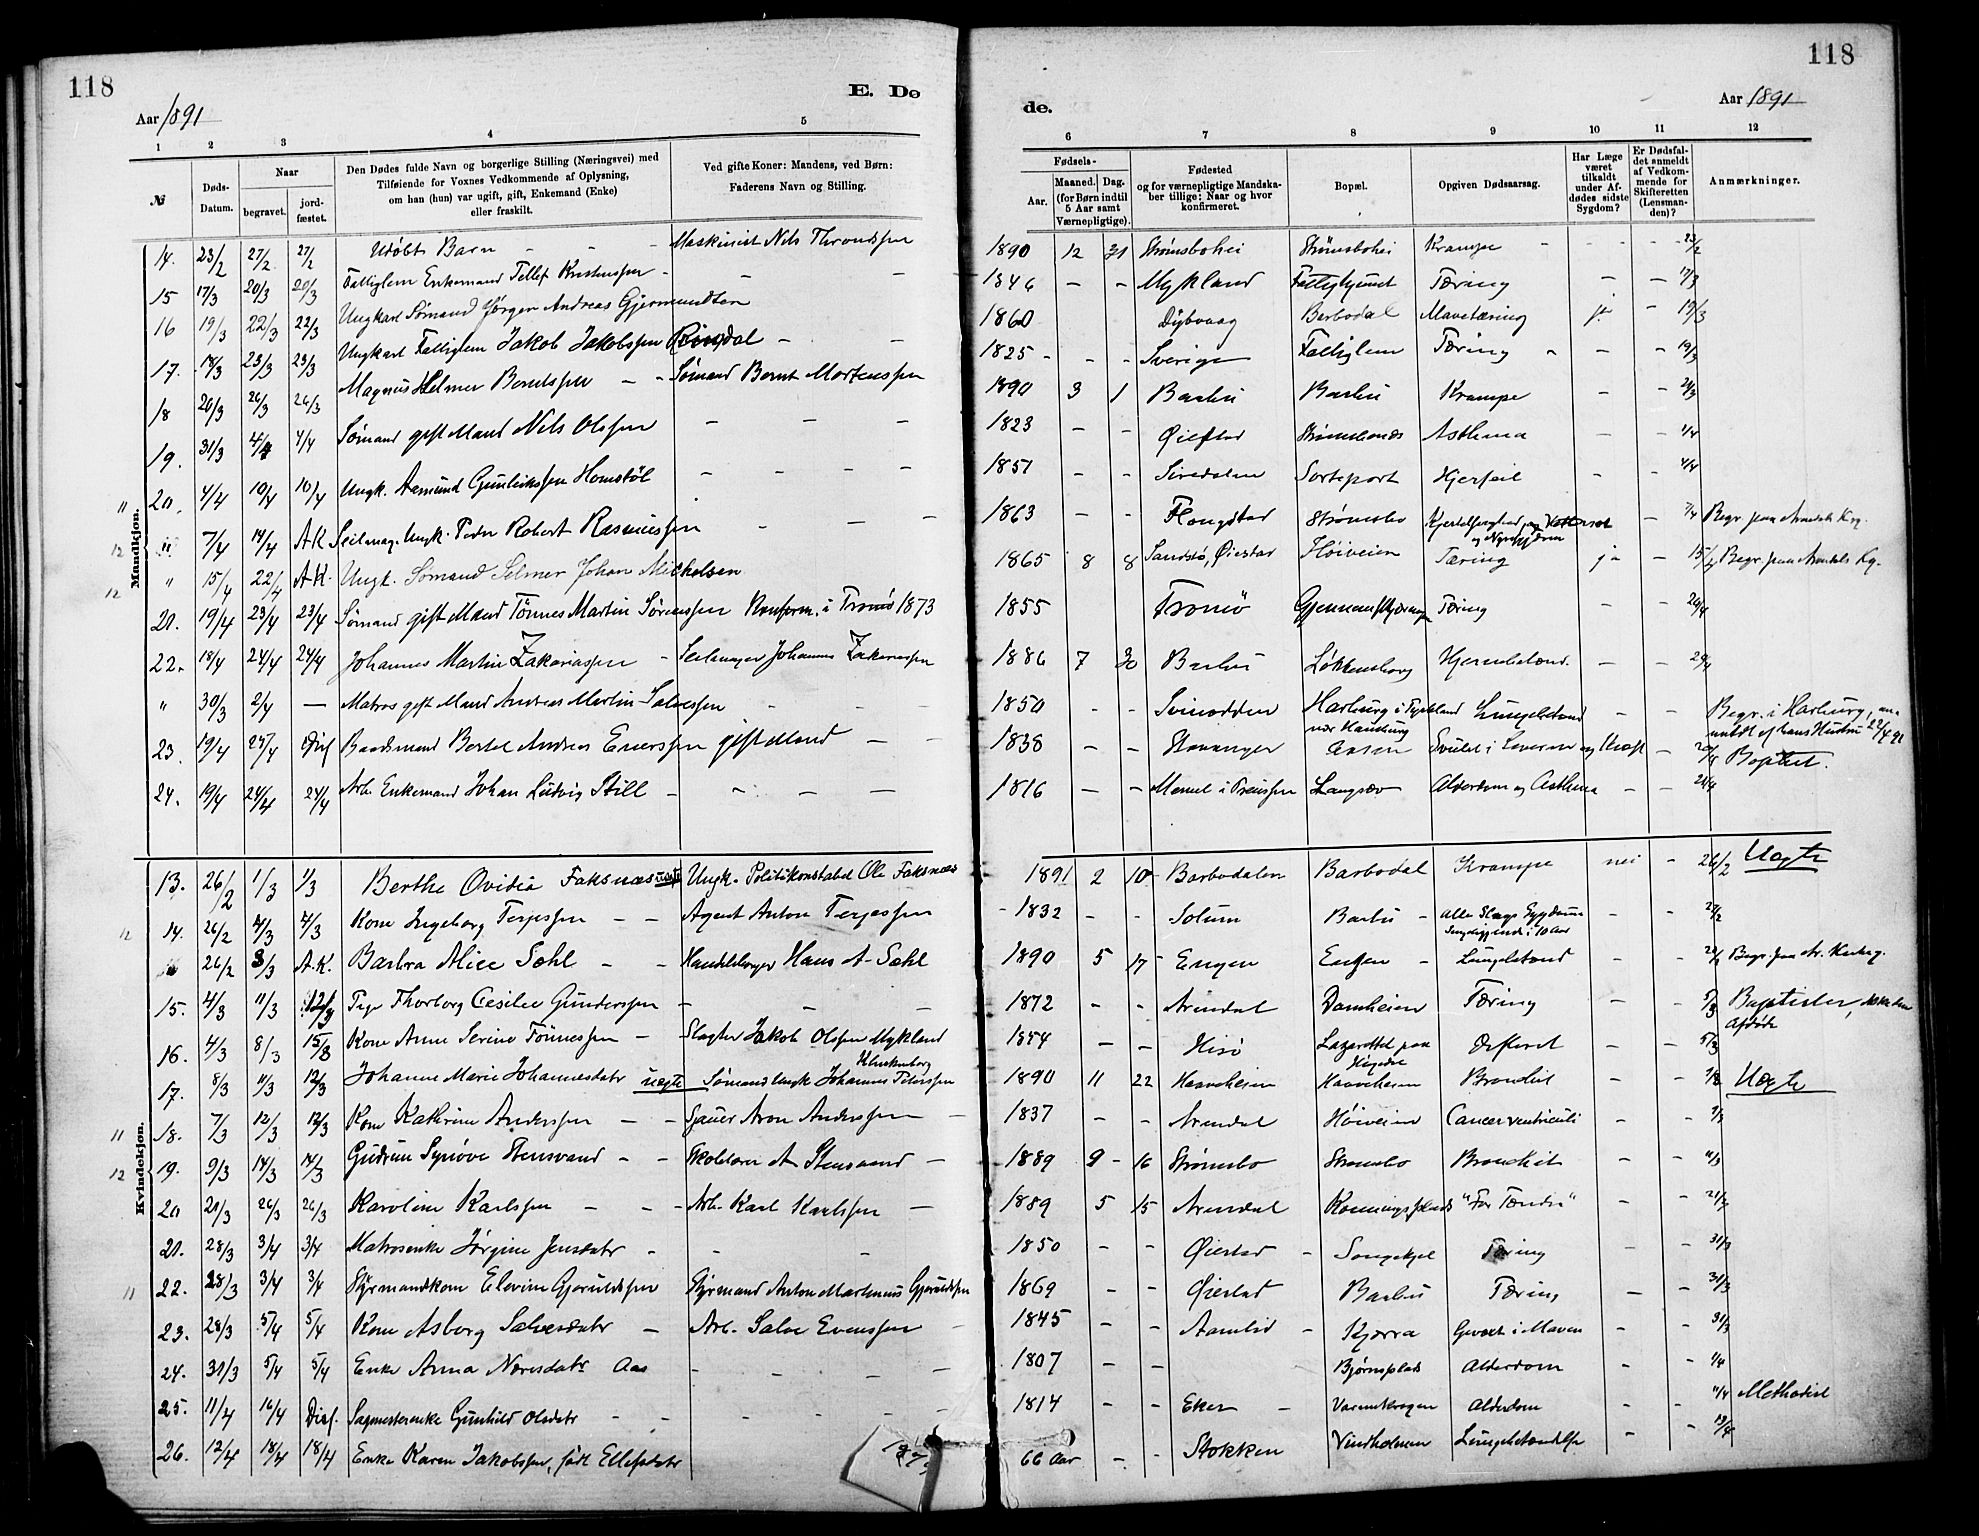 118
Aar 1891
E. Dø
1 2 3 4 5
№
Døds-Datum.
Naar
begravet.
jord-fæstet.
Den Dødes fulde Navn og borgerlige Stilling (Næringsvei) med
Tilføiende for Voxnes Vedkommende af Oplysning,
om han (hun) var ugift, gift, Enkemand (Enke)
eller fraskilt.
Ved gifte Koner: Mandens, ved Børn:
Faderens Navn og Stilling.
Mandkjøn.
14. 23/2 27/2 27/2 Udøbt Barn - - - Maskinist Nils Throndsen
15 17/3 20/3 20/3 Fattiglem Enkemand Tellef Kristenssen - - -
16 19/3 22/3 22/3 Ungkarl Sømand Jørgen Andreas Gjermundsen
17. 18/3 23/3 23/3 Ungkarl Fattiglem Jakob Jakobssen - -
18 20/3 26/3 26/3 Magnus Helmer Berntssen - - Sømand Bernt Mortenssen
19. 31/3 4/4 4/4 Sømand gift Mand Nils Olssen - - -
20. 4/4 10/4 10/4 Ungk. Asmund Gunleikssen Homstøl - - - -
" 7/4 14/4 A.K Seilmag. Ungk. Peder Robert Rasmussen - - -
" 15/4 22/4 A.K. Ungk. Sømand Selmer Johan Michelsen
21. 19/4 23/4 23/4 Sømand gift Mand Tönnes Martin Sørenssen Konform. i Tromö 1873
22. 18/4 24/4 24/4 Johannes Martin Zakariassen - Seilmager Johannes Zakariassen
" 30/3 2/4 — Matros gift Mand Andreas Martin Salvessen - -
23. 19/4 25/4 Diss Baadsmand Bertel Andreas Enerssen gift Mand - -
24. 19/4 24/4 24/4 Arb. Enkemand Johan Ludvig Still - - - -
Kvindekjøn.
13. 26/2 1/3 1/3 Berthe Ovidia Faksnæs uægte Ungk. Politikonstabel Ole Faksnæs
14. 26/2 4/3 4/3 Kone Ingeborg Terjessen - - Agent Anton Terjessen
26/2 3/3 A.K. Barbra Alice Sæhl - - Handelsborger Hans A. Sæhl
15. 4/3 11/3 12/3 Pige Thorborg Cesilie Gunderssen - - -
16. 4/3 8/3 15/3 Kone Anne Serine Tönnessen - - Slagter Jakob Olssen Mykland
17. 8/3 11/3 12/3 Johanne Marie Johannesdatr uægte Sømand Ungk. Johannes Peterssen
18. 7/3 12/3 12/3 Kone Kathrine Anderssen - - Aron Anderssen -
19. 9/3 14/3 14/3 Gudrun Synöve Stensvand - - Skolelærer A Stensvand -
20 21/3 26/3 26/3 Karoline Karlssen - - - Arb. Karl Karlssen -
21. 28/3 3/4 3/4 Matrosenke Jörgine Jensdatr - - -
22. 28/3 3/4 3/4 Styrmandkone Elevine Gjeruldssen Styrmand Anton Martinius Gjeruldssen
23. 28/3 5/4 5/4 Kone Asborg Salvesdatr - Arb. Salve Evenssen -
24. 31/3 5/4 5/4 Enke Anna Næresdatr Aas - - - -
25. 11/4 16/4 Diss. Sagmesterenke Gunhild Olsdatr - - - - - -
26. 12/4 18/4 18/4 Enke Karen Jakobssen, født Ellefsdatr
118
de.
Aar 1891
6 7 8 9 10 11 12
Fødsels-
Aar.
Maaned. Dag.
(for Børn indtil
5 Aar samt
Værnepligtige).
Fødested
og for værnepligtige Mandska-
ber tillige: Naar og hvor
konfirmeret.
Bopæl.
Opgiven Dødsaarsag.
Har Læge
været
tilkaldt
under Af-
dødes sidste
Sygdom?
Er Dødsfal-
det anmeldt
af Vedkom-
mende for
Skifteretten
(Lensman-
den)?
Anmærkninger.
1890 12 31 Strømsbohei Strömsbohei Krampe - - 23/2
1846 - - Mykland Fattighjemmet Tæring - - 17/3
1860 Dybvaag Barbodal Mavetæring ja - 19/3
1825 - - - Sverige Fattiglem Tæring - - - 19/3
1890 3 1 Barbu Barbu Krampe - - 21/3
1823 - - Øiestad Strömsbonæs Asthma - - 1/4
1851 - - Siredalen Sorteport Hjerfeil - - 4/4
1863 - - Flangstad Strømsbo - 7/4 Begr. paa Arendals Kg.
1865 8 8 Sandsö, Øiestad Høiveien Tæring ja - 15/4 Begr. paa Arendals Kg.
1855 Tromö Tæring - - 20/4
1886 7 30 Barbu Løkkensborg Hjernebetænd. - - 20/4
1850 - - Svinodden Harburg i Tyskland nær Hamburg Lungebetænd - - Begr. i Harburg, an-
meldt af hans Hustru 22/4 91
1838 - - Stavanger Aasen Svulst i Leveren og Kræft - 20/4 Baptist.
1816 - - Memel i Preussen Langsæv Alderdom og Asthma - - 21/4
1891 2 10 Barbodalen Barbodal Krampe nei - 26/2 Uægte
1832 - - Solum Barbu - Alle Slags Sygdomme
Sengeliggende i 10 Aar - - 27/2
1890 5 17 Engen Engen - Lungebetænd - - Begr. paa Ar. Kirkeg.
1872 - - Arendal Damheien Tæring - - 5/3 Baptister,
Afdøde
1854 - - Hisö Lazarettet paa - - 5/3
1890 11 22 Haaveheien Haaveheien Bronkit - - Uægte
1837 - - Arendal Høiveien Cancer ventriculi - -
1889 9 16 Strømsbo Strømsbo Bronchit - - 11/3
1889 5 15 Arendal "For Tænder" - -
1850 - - Øiestad - Songekjel Tæring - - 31/3
1869 - - Øiestad Barbu Tæring - - 31/3
1845 - - Aamlid - Kjærra Gevæxt i Maven - - 31/3
1807 - - Bjørnsplads Alderdom - - 1/4
1814 - - Eker - Varmekrogen Alderdom - - 11/4 Methodist
66 Aar - - Stokken Vindholmen Lungebetændelse - - 13/4